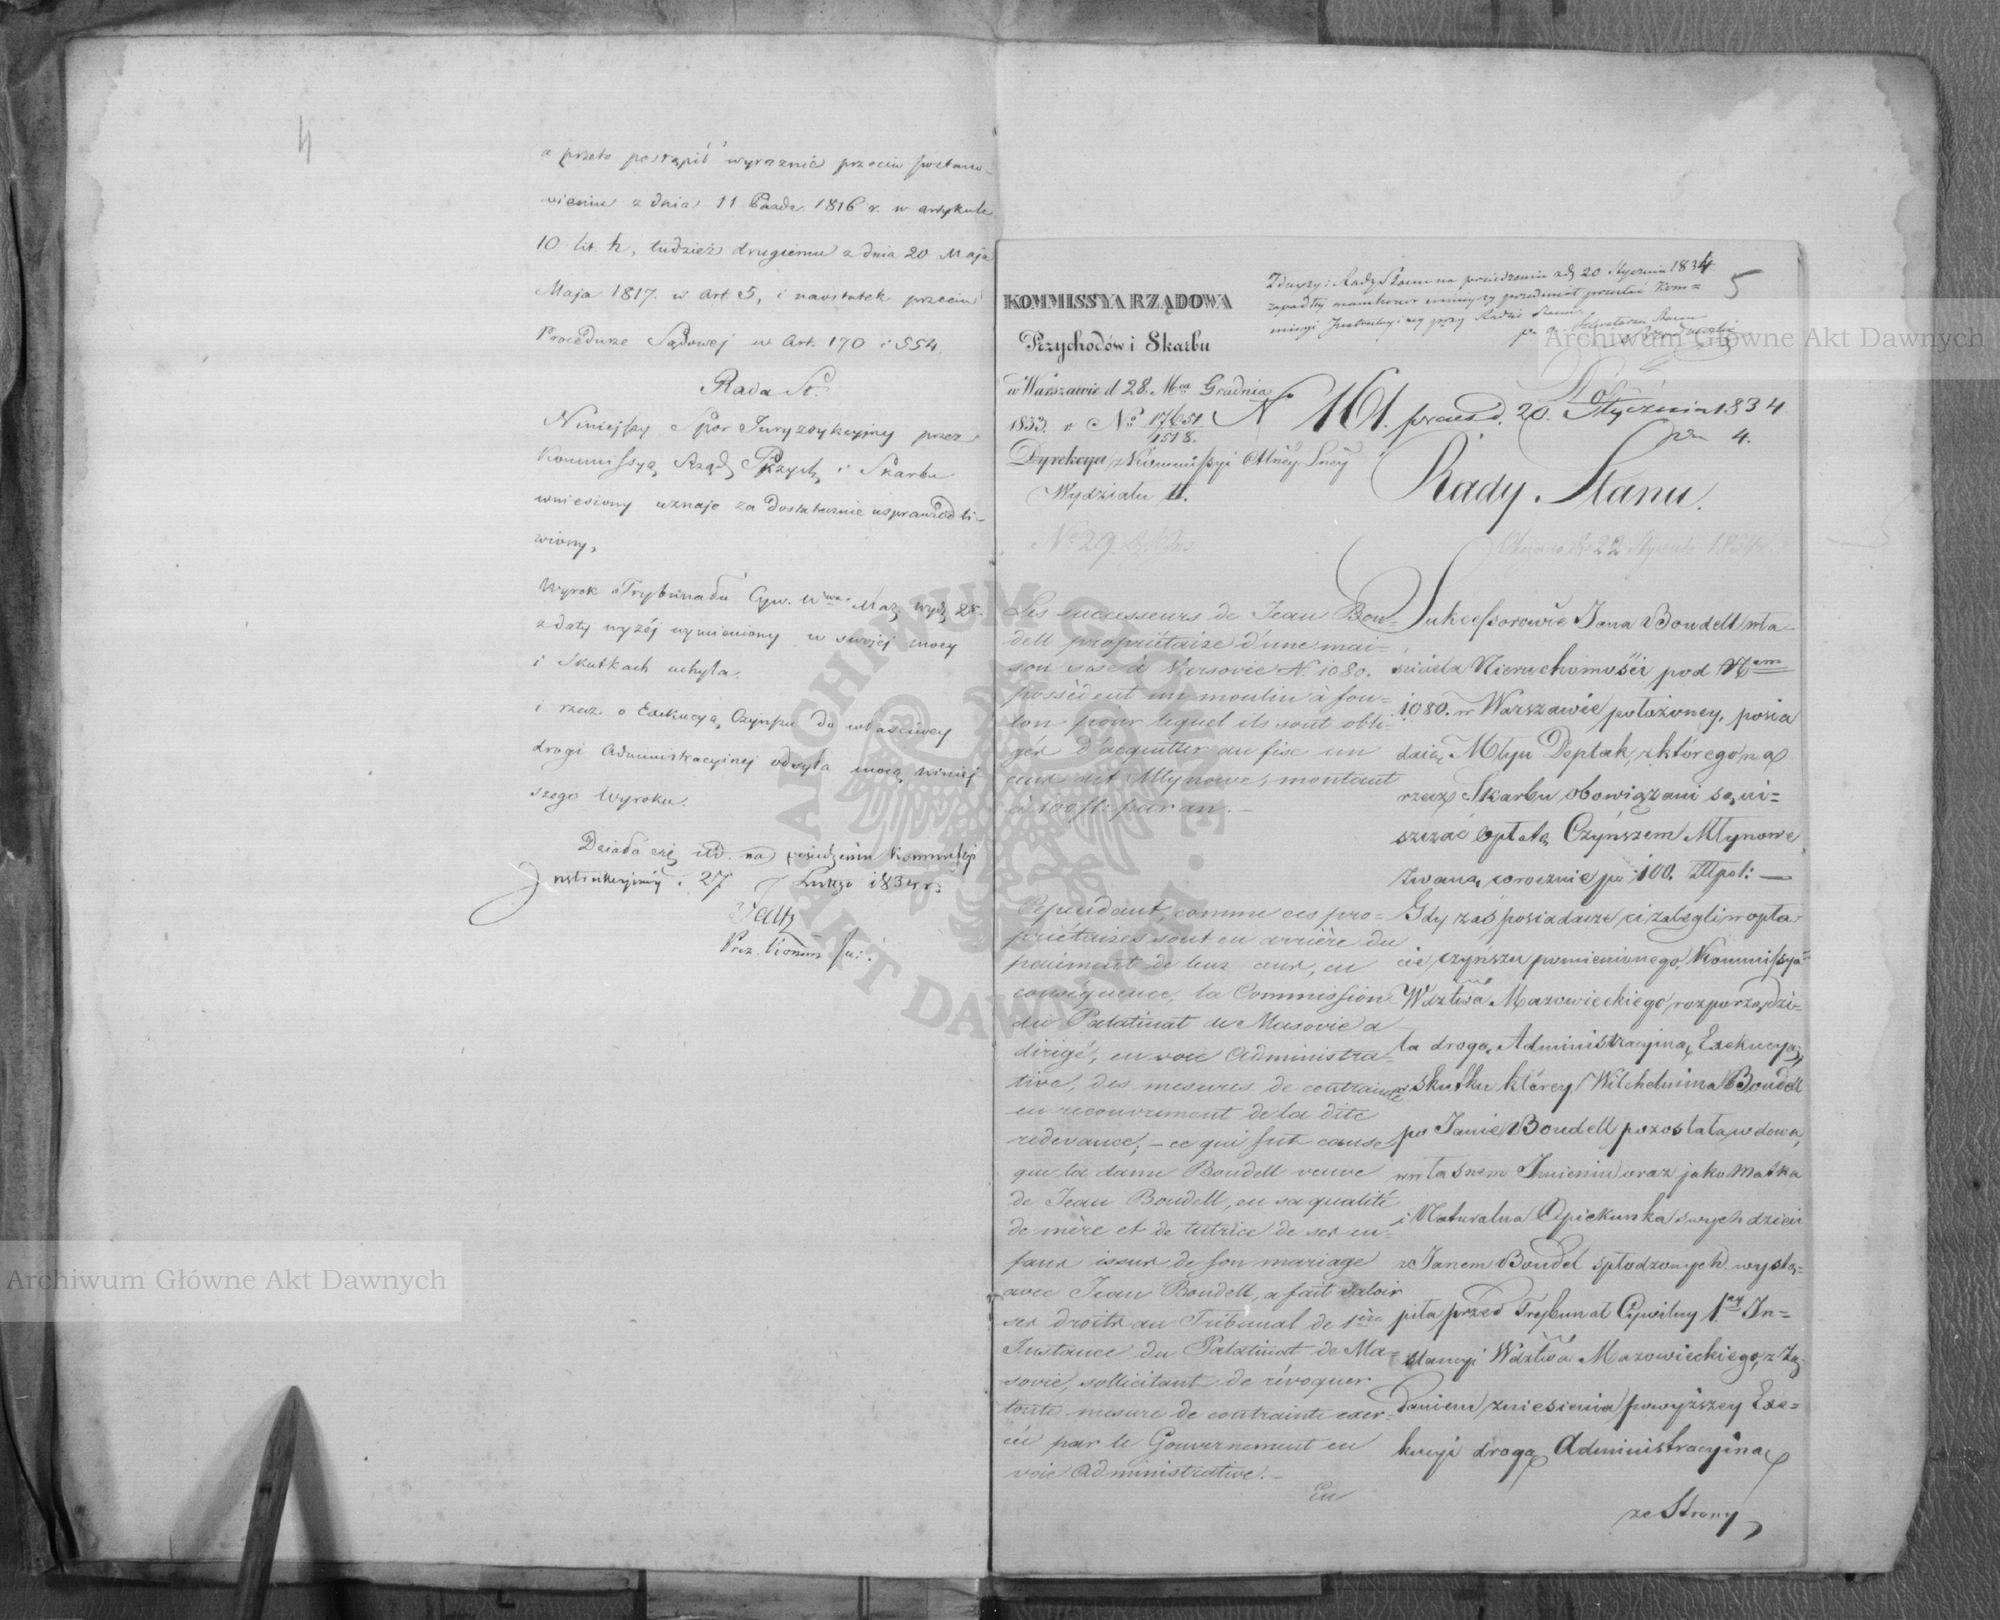 4
a przeto postąpić wyraznie przeciw postano-
wieniu z dnia 11 Paźdz. 1816 r. w artykule
10 lit. h, tudzież drugiemu z dnia 20 Maja
Maja 1817. w Art. 5, i naostatek przeciw
Procedurze Sądowej w Art. 170 i 554.
Rada St.
Niniejszy Spór Juryzdykcyjny przez
Kommissyą Rząd. Przych. i Skarbu
wniesiony uznaje za dostatecznie usprawiedli-
wiony,
Wyrok Trybunału Cyw. Wwa Maz. Wydz
z daty wyżéj wymieniony w swojéj mocy
i skutkach uchyla.
i rzecz o Exekucyą Czynszu do właściwey
drogi Administracyjnej odsyła mocą niniej-
szego Wyroku.
Działo się itd. na posiedzeniu Kommissyi
Instrukcyjnéj 27 Lutego 1834 r.
Prez.
5
Rady Stanu na posiedzeniu 20 Stycznia 1834
KOMMISSYA RZĄDOWA
Przychodów i Skarbu
w Warszawie d 28. Mca Grudnia
1833. r No 17651
4518.
Dyrekcya
Wydziału II.
No 161. praes d. 20. Stycznia 1834
4.
Do
Rady Stanu.
No 29
22 Stycznia 1834
Les successeurs de Jean Bou-
dell propriétaire d'une mai-
son sise à Varsovie N. 1080.
possèdent un moulin à fou-
lon pour lequel ils sont obli-
gés d'acquitter au fisc un
cens dit Młynowe, montant
à 100 fl: par an. –
Cependant, comme ces pro-
priétaires sont en arrière du
paiement de leur cens, en
conséquence, la Commission
du Palatinat de Masovie a
dirigé, en voie Administra-
tive, des mesures de contrainte
en recouvrement de la dite
redevance; – ce qui fut cause
que la dame Boudell veuve
de Jean Boudell, en sa qualité
de mère et de tutrice de ses en-
fans issus de son mariage
avec Jean Boudell, a fait valoir
ses droits au Tribunal de 1ère
Instance du Palatinat de Ma-
sovie, sollicitant de révoquer
toute mesure de contrainte exer-
cée par le Gouvernement en
voie Administrative. –
En
Sukcessorowie Jana Boudell wła-
ściciela Nieruchomości pod Nrem
1080. w Warszawie położoney, posia
daią Młyn Deptak, z którego na
rzecz Skarbu obowiązani są ui-
szczać opłatę Czynszem Młynowe
zwaną, corocznie po 100. Złłpol: —
Gdy zaś posiadacze ci zalegli w opła-
cie czynszu pomienionego, Kommissya
Wdztwa Mazowieckiego, rozporządzi-
ła drogą Administracyjną Exekucyą,
w skutku którey Wilhelmina Boudell
po Janie Boudell pozostała wdowa,
w własnem Imieniu oraz jako Matka
i Naturalna Opiekunka swych dzieci
z Janem Boudel spłodzonych, wystą-
piła przed Trybunał Cywilny 1ey In-
stancyi Wdztwa Mazowieckiego, z Żą-
daniem zniesienia powyższey Exe-
kucyi drogą Administracyiną
ze Strony
Archiwum Główne Akt Dawnych
Archiwum Główne Akt Dawnych
ARCHIWUM GŁÓWNE AKT DAWNYCH